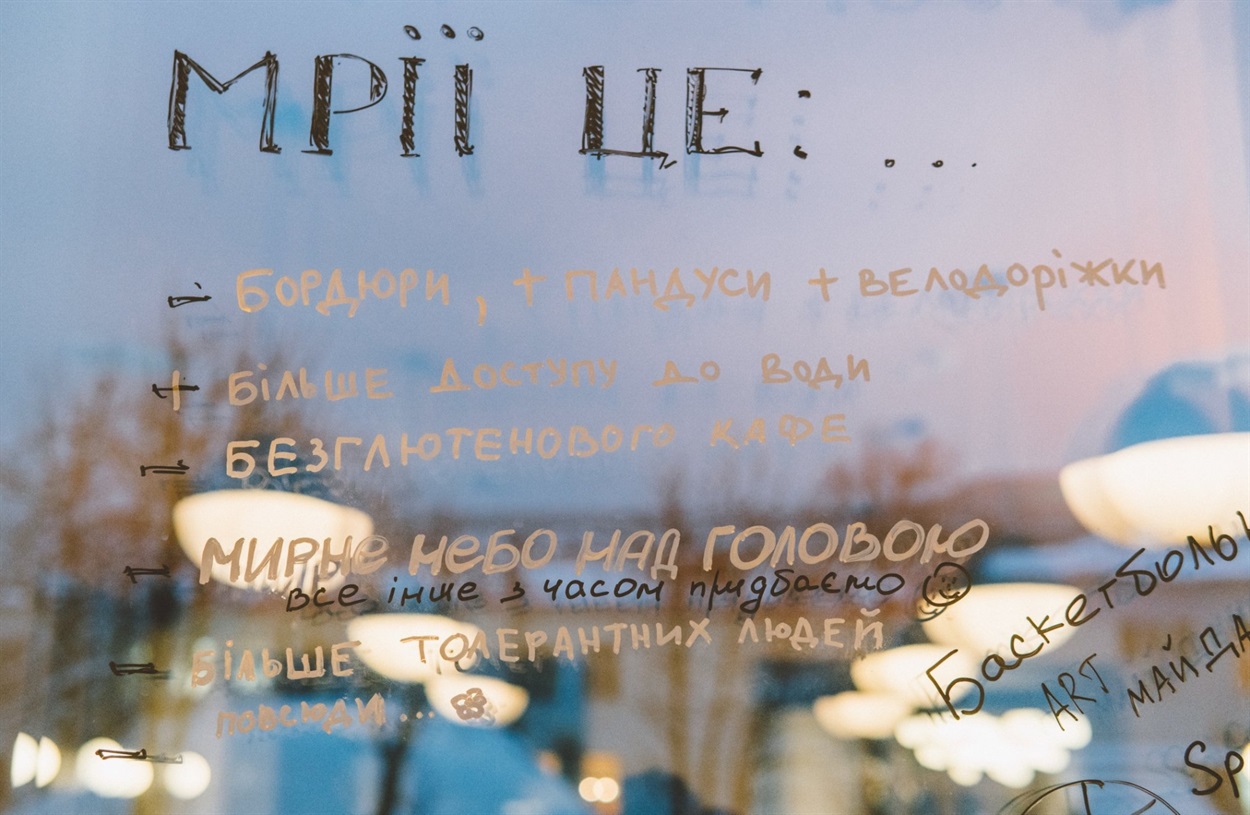 МРІЇ ЦЕ: ...
- БОРДЮРИ, + ПАНДУСИ + ВЕЛОДОРІЖКИ
+ БІЛЬШЕ ДОСТУПУ ДО ВОДИ
- БЕЗГЛЮТЕНОВОГО КАФЕ
- МИРНЕ НЕБО НАД ГОЛОВОЮ
все інше з часом придбаємо
- БІЛЬШЕ ТОЛЕРАНТНИХ ЛЮДЕЙ
ПОВСЮДИ...
-
Баскетболь
ART МАЙДА
Sp